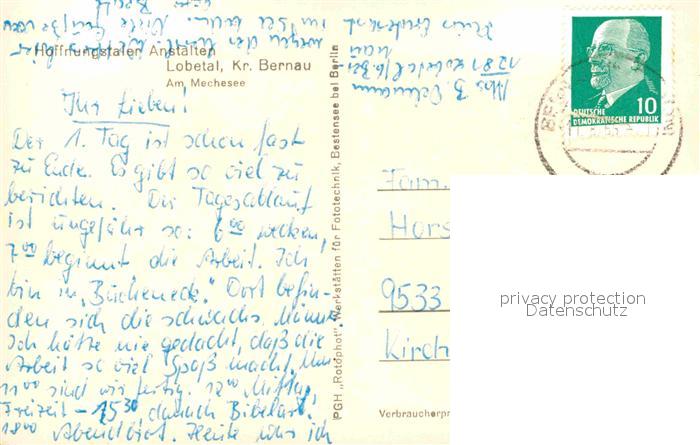 Hoffnungstaler Anstalten
Lobetal, Kr. Bernau
Am Mechesee
Ihr Lieben!
Der 1. Tag ist schon fast
zu Ende. Es gibt so viel zu
berichten. Der Tagesablauf
ist ungefähr so: 6 00 wecken,
7 00 beginnt die Arbeit. Ich
bin in „Bucheneck." Dort befin-
den sich die schwachs. Männer.
Ich hätte nie gedacht, daß die
Arbeit so viel Spaß macht. Um
11 00 sind wir fertig. 12 00 Mittag,
Freizeit - 15 30, danach Bibelarb.
18 00 Abendbrot. Heute war ich
im See baden. Viele Grüße von
PGH „Rotophot" Werkstätten für Fototechnik, Bestensee bei Berlin
1281 Lobetal b. Ber-
nau
10
DEUTSCHE
DEMOKRATISCHE REPUBLIK
Fam.
Hors
9533
Kirch
privacy protection
Datenschutz
Verbraucherpr